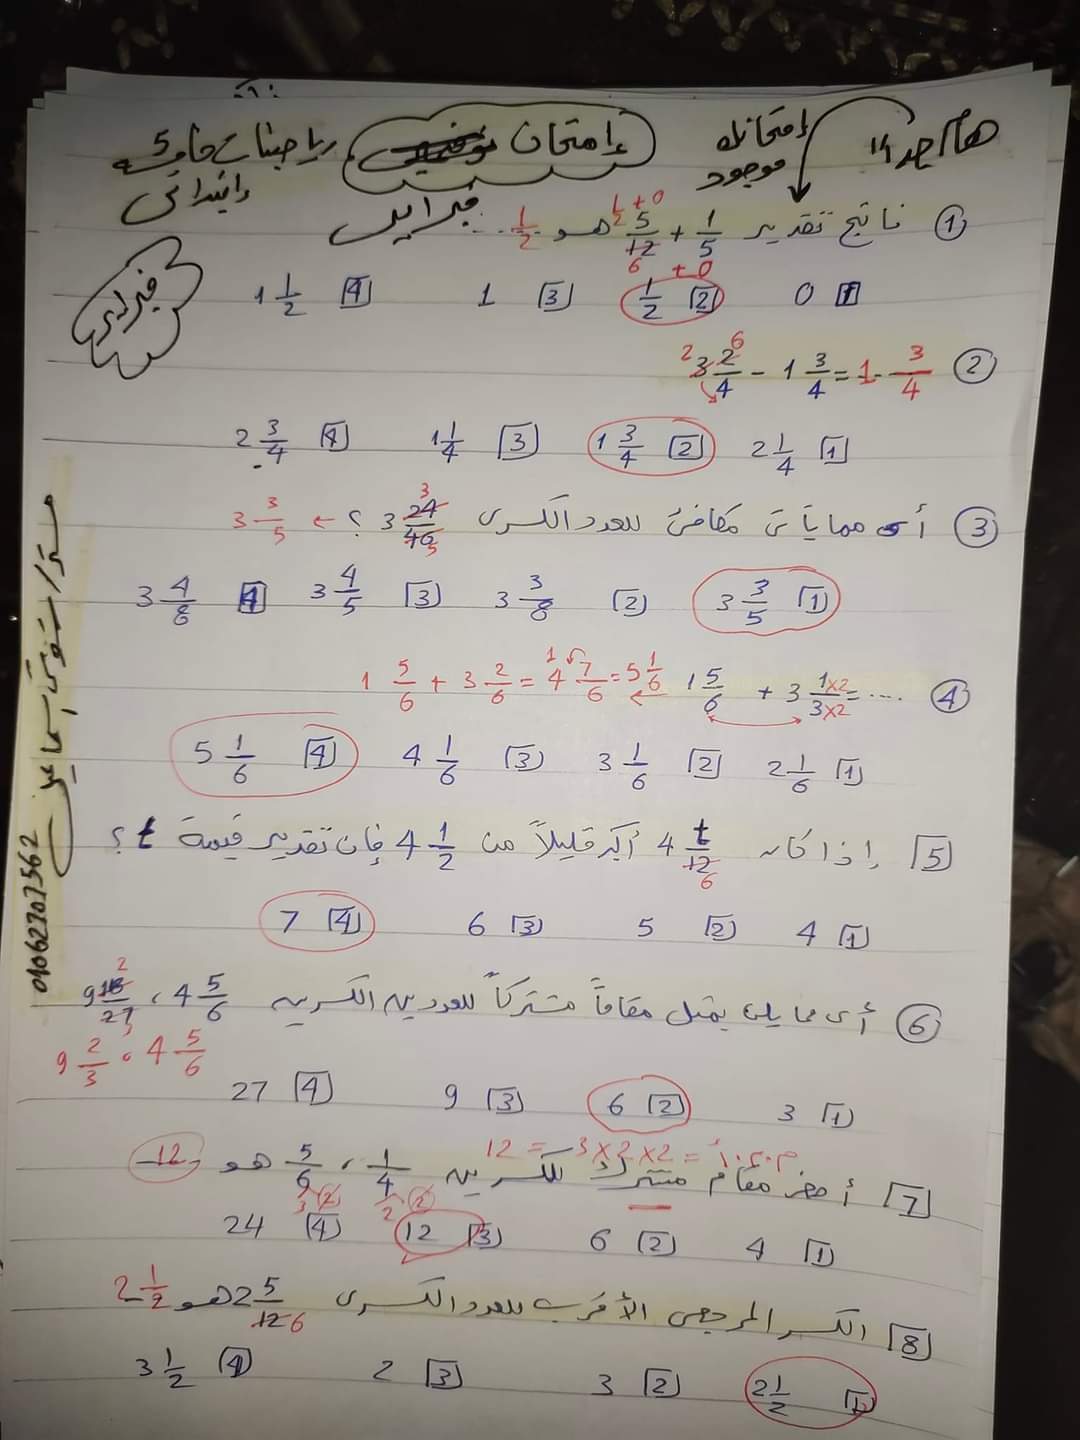 هام جدا !!
إمتحانات موجود
إمتحان
رياضيات خامسة 5 إبتدائى
فبراير
فبراير
① ناتج تقدير 1/5 + 5/12 هو 1/2
1/2 + 0
6
+ 0
[1] 0 [2] 1/2 [3] 1 [4] 1 1/2
② 3 2/4 - 1 3/4 = 1 3/4
2 6
[1] 2 1/4 [2] 1 3/4 [3] 1 1/4 [4] 2 3/4
③ أى مما يأتى مكافئ للعدد الكسرى 3 24/40 ؟ ← 3 3/5
3
5
[1] 3 3/5 [2] 3 3/8 [3] 3 4/5 [4] 3 4/8
④ 1 5/6 + 3 1×2/3×2 = ....
1 5/6 + 3 2/6 = 4 7/6 = 5 1/6
[1] 2 1/6 [2] 3 1/6 [3] 4 1/6 [4] 5 1/6
[5] إذا كان 4 t/12 أكبر قليلاً من 4 1/2 فإن تقدير قيمة t ؟
6
[1] 4 [2] 5 [3] 6 [4] 7
⑥ أى مما يلى يمثل مقاماً مشتركاً للعددين الكسريين 4 5/6 ، 9 18/27
2
3
9 2/3 ، 4 5/6
[1] 3 [2] 6 [3] 9 [4] 27
م.م.أ = 2×2×3 = 12
[7] أصغر مقام مشترك للكسرين 1/4 ، 5/6 هو 12
2 2 3 2
[1] 4 [2] 6 [3] 12 [4] 24
[8] الكسر المرجعى الأقرب للعدد الكسرى 2 5/12 هو 2 1/2
6
[1] 2 1/2 [2] 3 [3] 2 [4] 3 1/2
01062707562